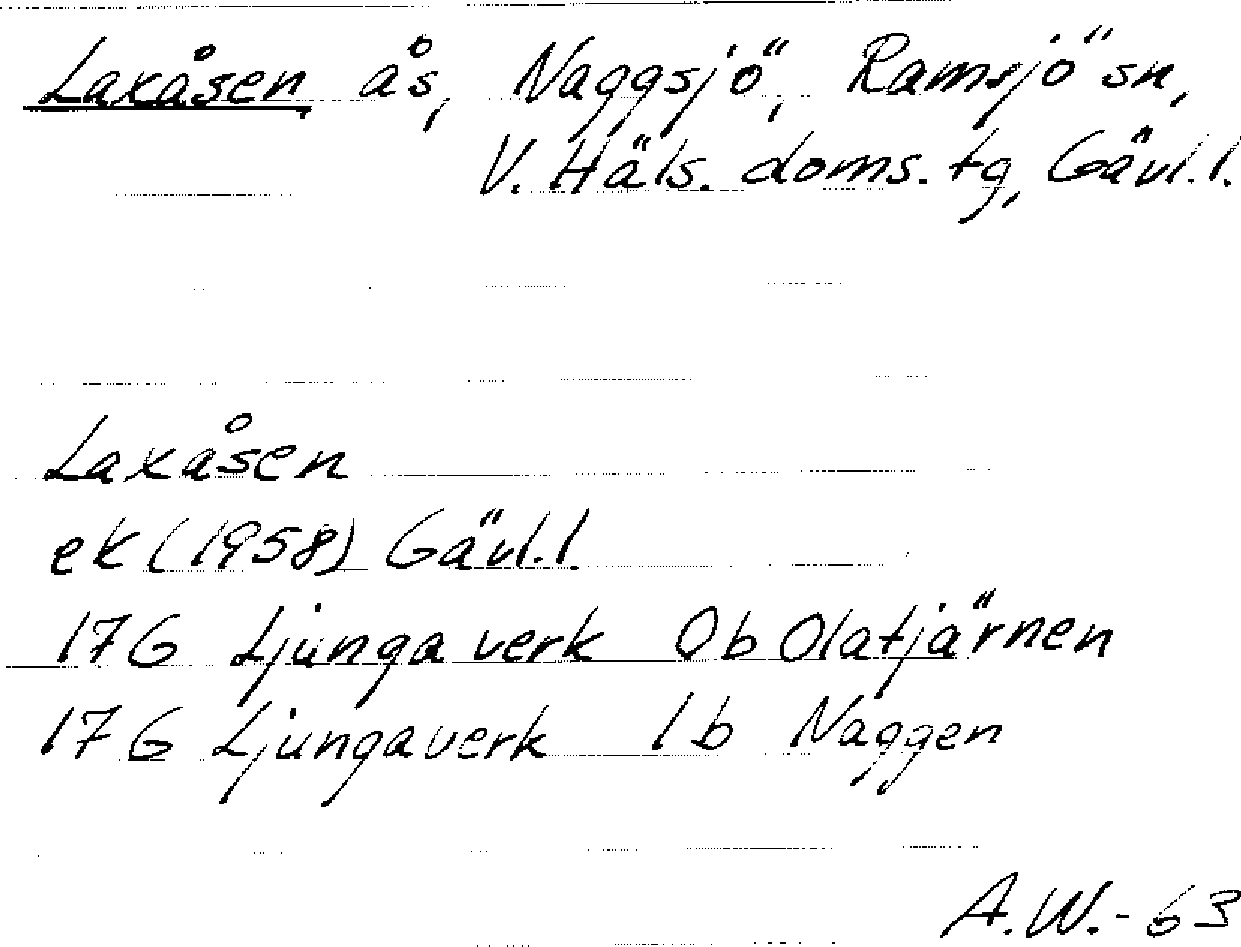 Laxåsen, ås, Naggsjö, Ramsjö sn,
V. Häls. doms. tg, Gävl.l.
Laxåsen
ek (1958) Gävl.l.
17G Ljungaverk 0b Olatjärnen
17G Ljungaverk 1b Naggen
A.W.-63